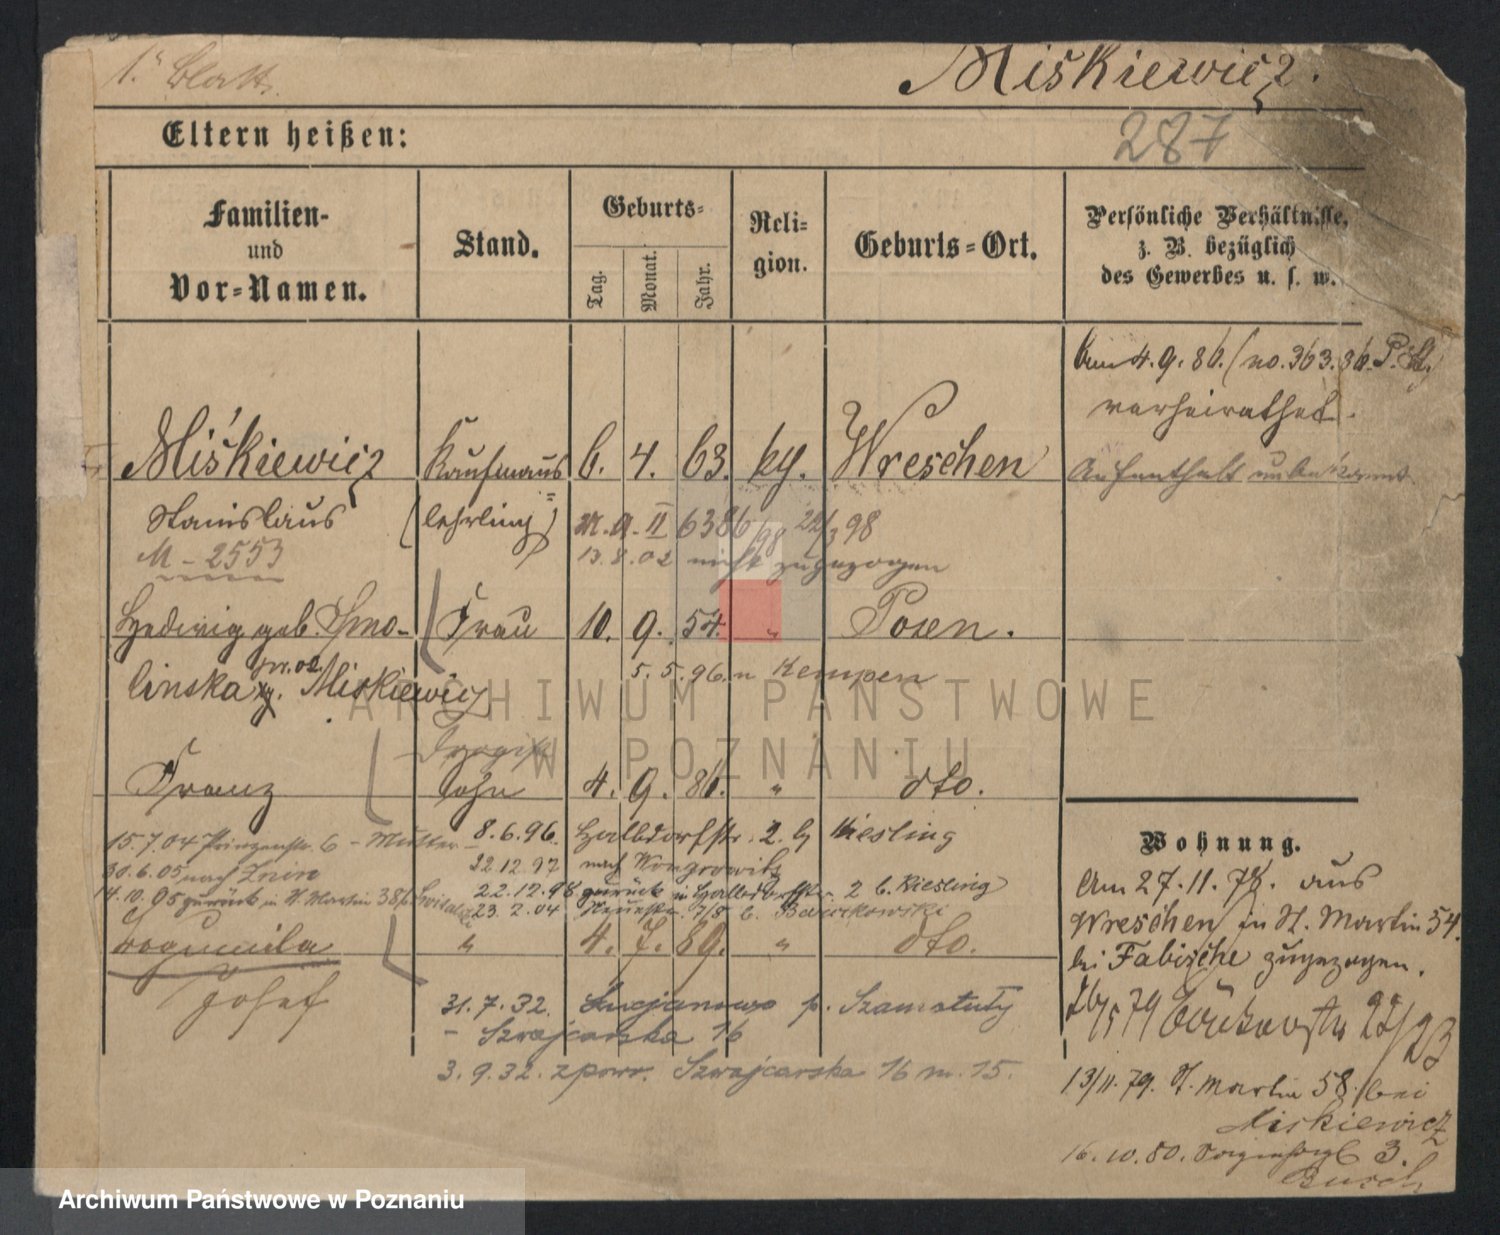 1. Blatt.
Miśkiewicz.
287
Eltern heißen:
Familien-
und
Vor-Namen.
Stand.
Geburts-
Tag.
Monat.
Jahr.
Reli-
gion.
Geburts-Ort.
Persönliche Verhältnisse,
z. B. bezüglich
des Gewerbes u. s. w.
Am 4.9.86. (no. 363.86. P. St.)
verheirathet.
Miśkiewicz Kaufmanns 6. 4. 63. kg. Wreschen
Aufenthalt unbekannt
Stanislaus (lehrling) II 6386/98 22/3 98
M - 2553
13.8.02 nicht zugezogen
Hedwig geb. Smo- Frau 10. 9. 54. " Posen.
linska Miskiewicz
5.5.96. n Kempen
Drogist
Franz Sohn 4. 9. 86. " dto.
15.7.04 Prinzenstr. 6 - Mutter - 8.6.96. Halbdorfstr. 2. b Kiesling
30.6.05 nach Znin 22.12.97 nach Wongrowitz
14.10.05 zurück in St. Martin 38 22.12.98 zurück in Halbdorfstr. 2 b. Kiesling
23.2.04 7/8 b.
Bogumila " 4. 7. 89. " dto.
Josef
31.7.32. Lucjanowo p. Szamotuły
- Szwajcarska 16
3.9.32. z powr. Szwajcarska 16 m. 15.
Wohnung.
Am 27.11.78. aus
Wreschen in St. Martin 54.
bei Fabische zugezogen.
26/5 79 22/23
13/11.79. St. Martin 58. bei
Miskiewicz
16.10.80. 3.
Busch
ARCHIWUM PAŃSTWOWE
W POZNANIU
Archiwum Państwowe w Poznaniu